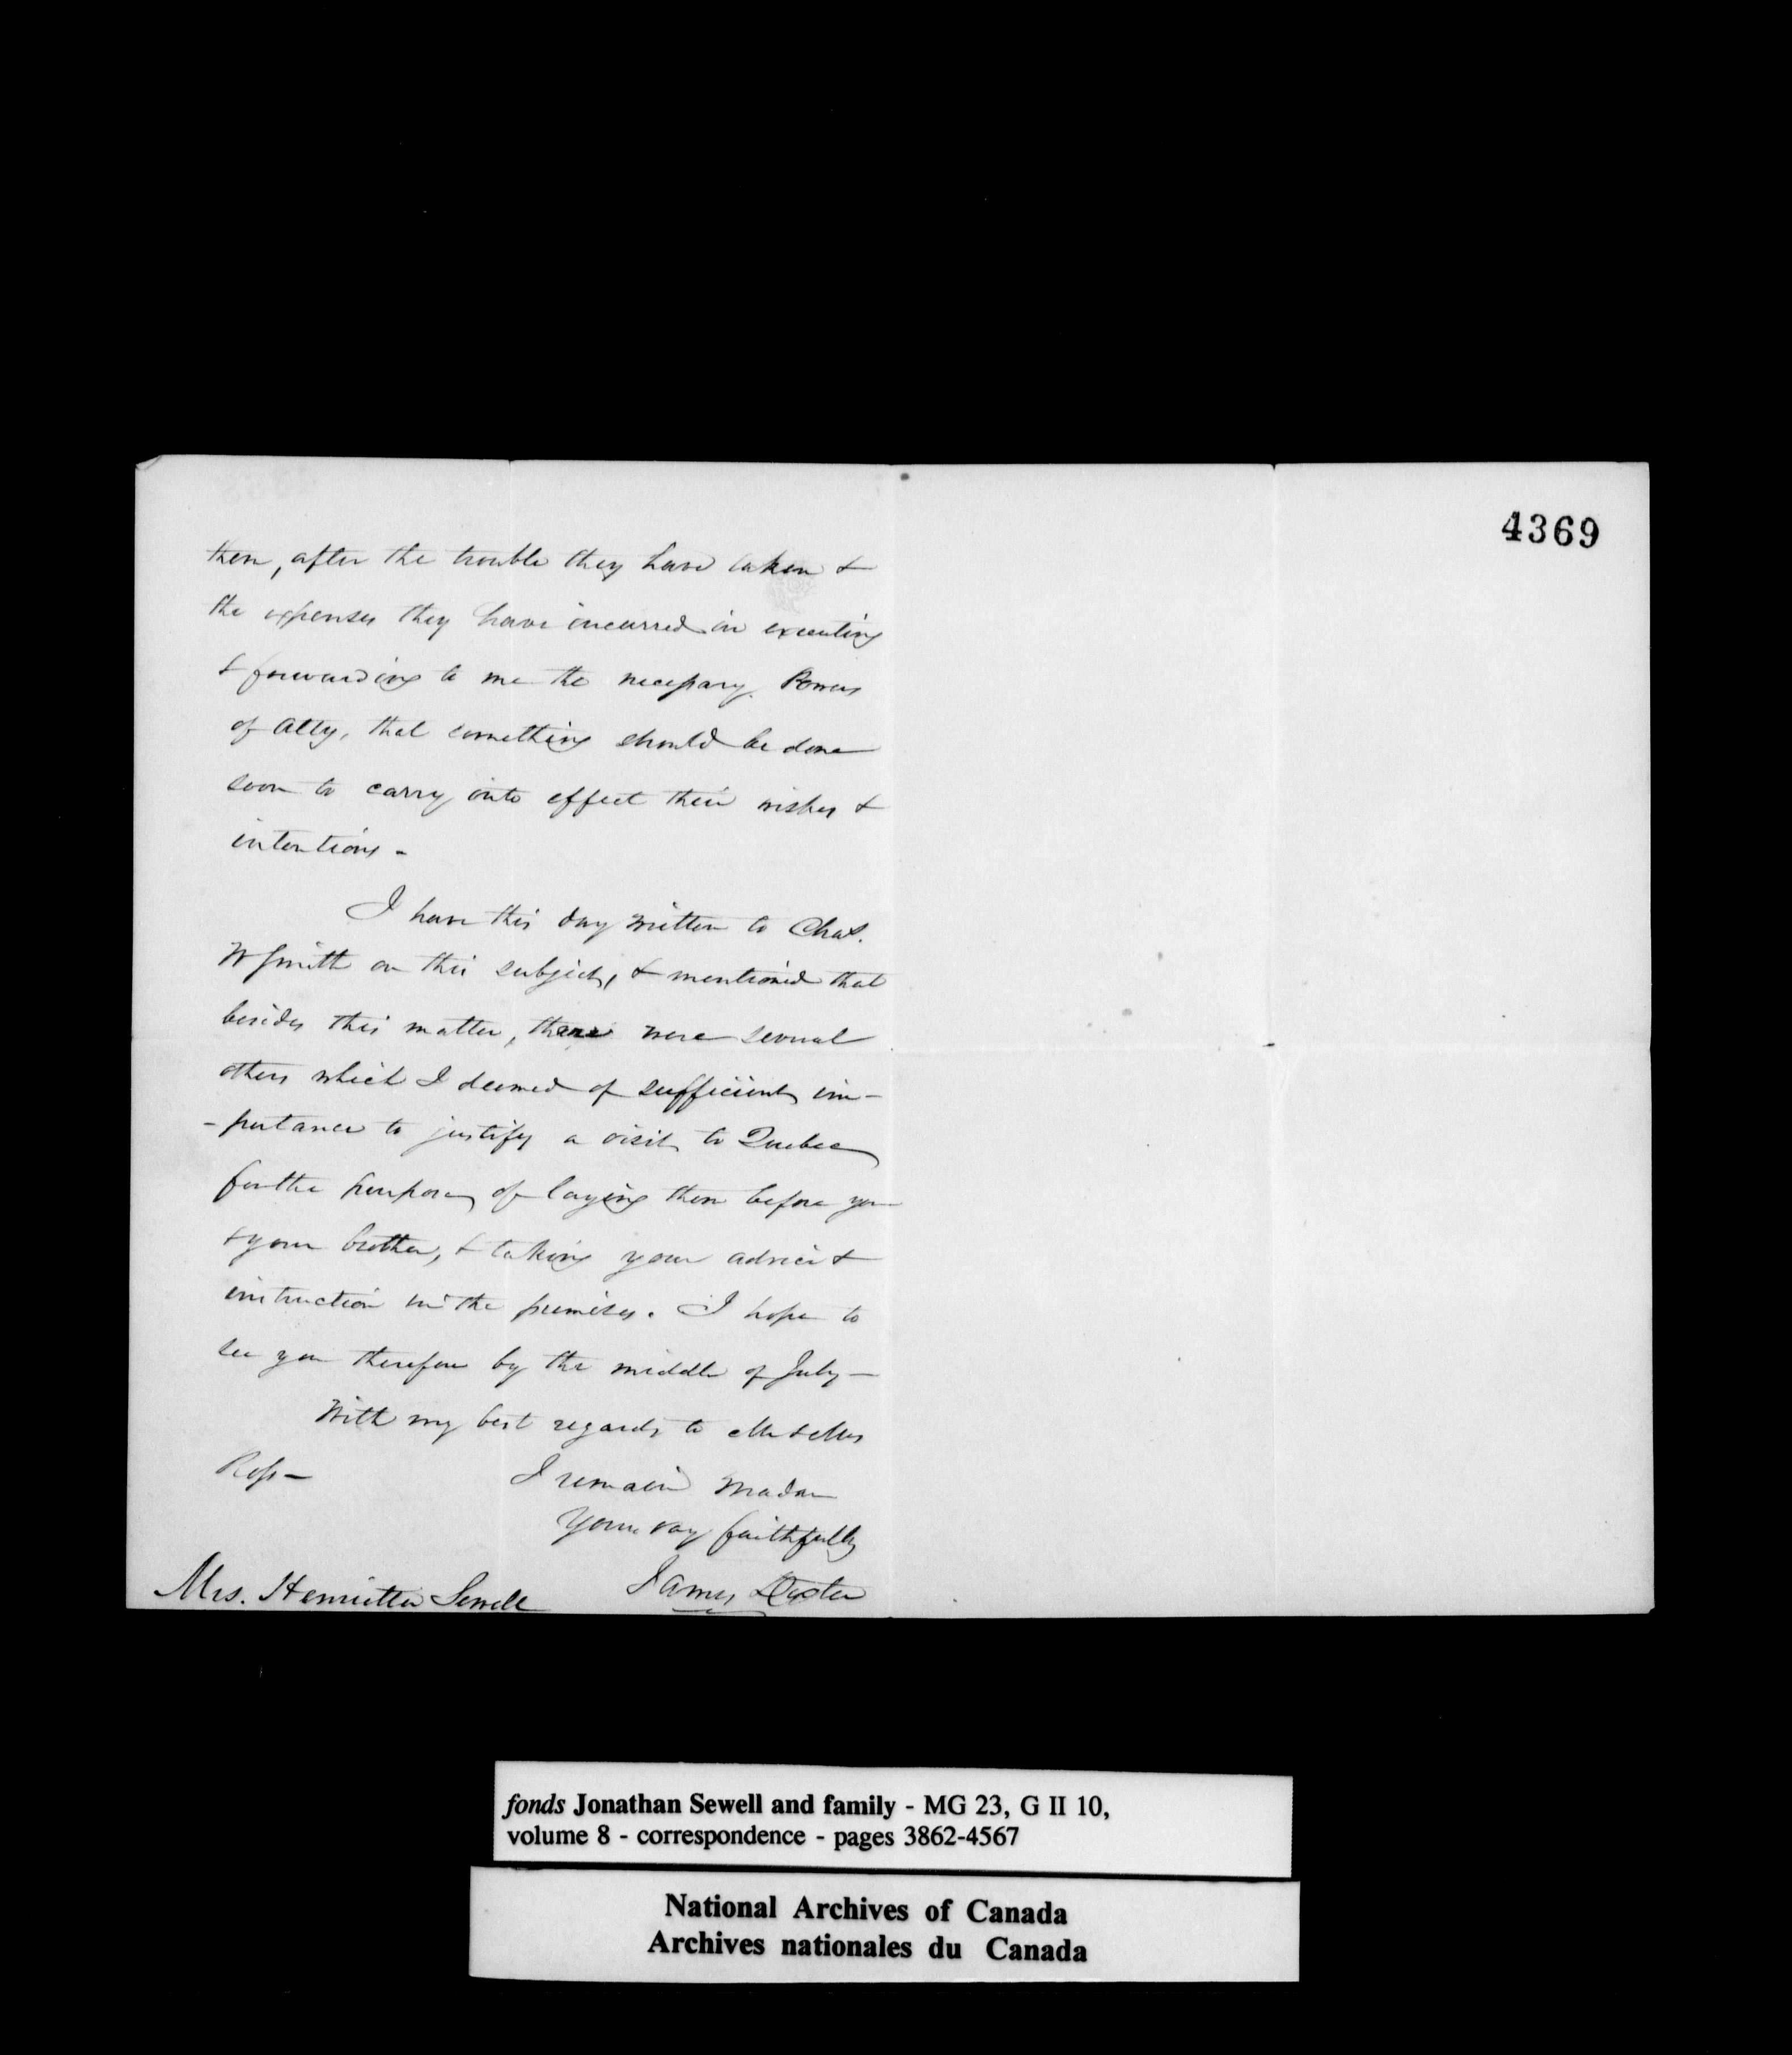 4369
them, after the trouble they have taken &
the expenses they have incurred in executing
& forwarding to me the necessary Powers
of Atty, that something should be done
soon to carry into effect their wishes &
intentions -
I have this day written to Chas.
W Smith on this subject, & mentioned that
besides this matter, there were several
others which I deemed of sufficient im-
-portance to justify a visit to Quebec
for the purpose of laying them before you
& your brother, & taking your advice &
instruction in the premises. I hope to
see you therefore by the middle of July -
With my best regards to Mr & Mrs
Ross -
I remain Madam
Yours very faithfully
James Dexter
Mrs. Henrietta Sewell
fonds Jonathan Sewell and family - MG 23, G II 10,
volume 8 - correspondence - pages 3862-4567
National Archives of Canada
Archives nationales du Canada